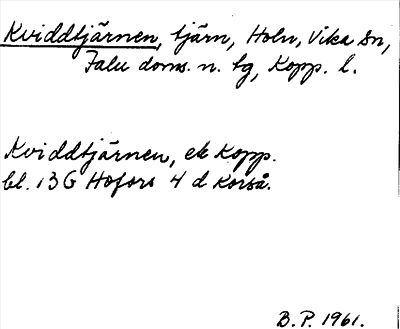 Kviddtjärnen, tjärn, Holn, Vika sn,
Falu doms. n. tg, Kopp. l.
Kviddtjärnen, ek Kopp.
bl. 13G Hofors 4 d Korså.
B.P. 1961.